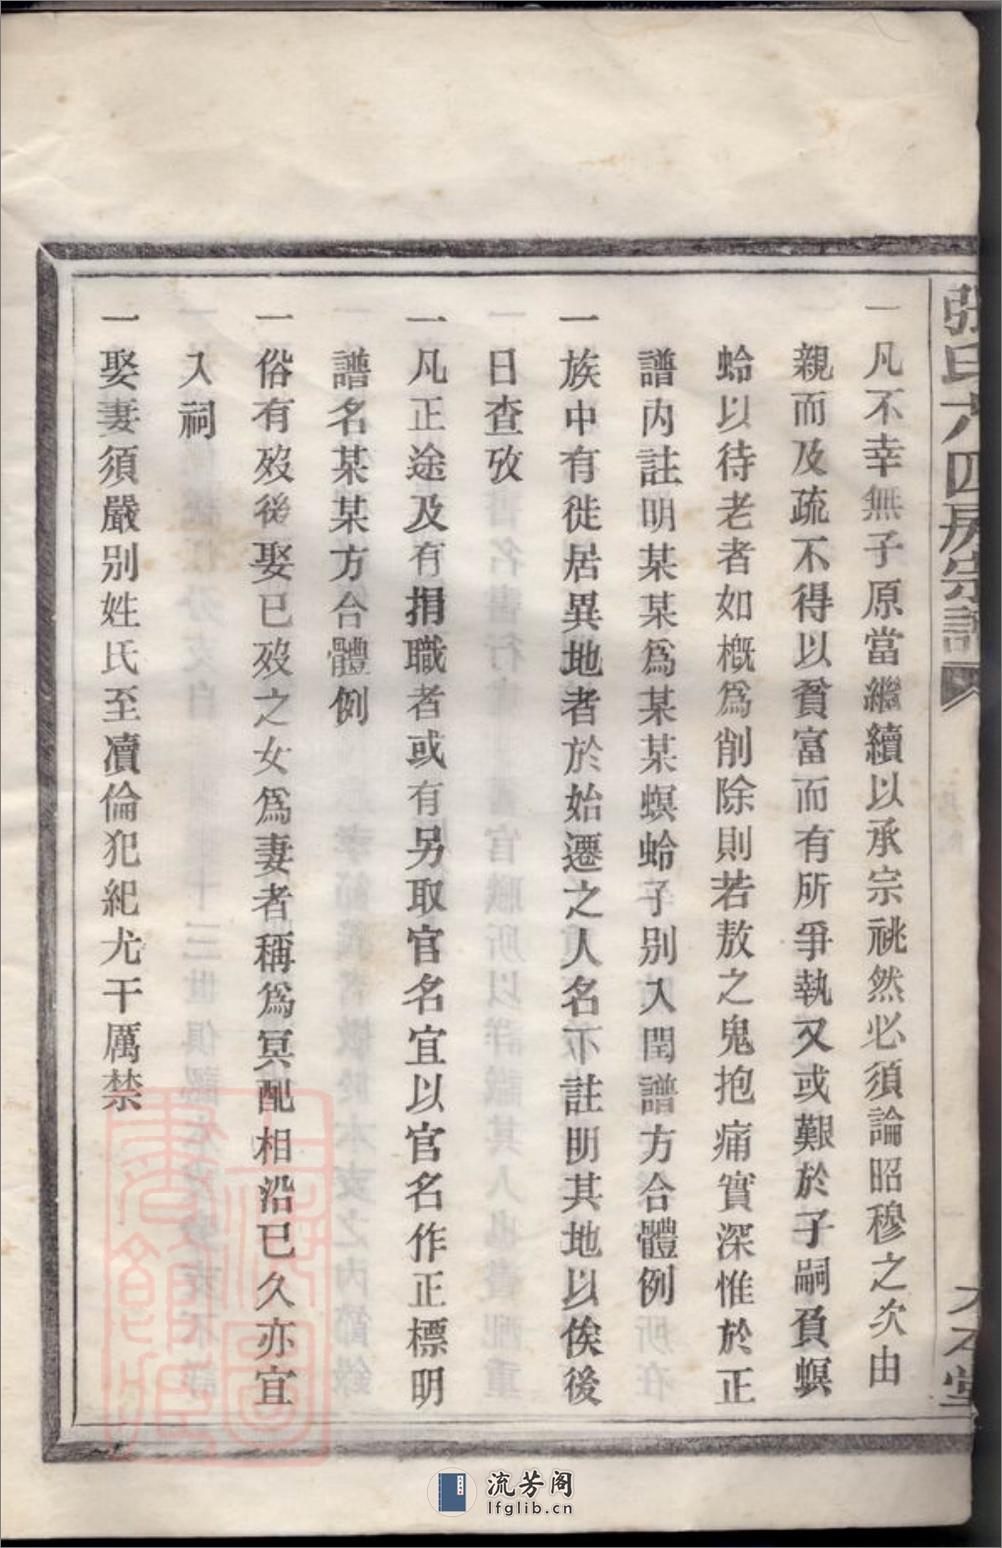 張氏六四房宗譜
一凡不幸無子原當繼續以承宗祧然必須論昭穆之次由
親而及疏不得以貧富而有所爭執又或艱於子嗣負螟
蛉以待老者如概爲削除則若敖之鬼抱痛實深惟於正
譜內註明某某爲某某螟蛉子別入閏譜方合體例
一族中有徙居異地者於始遷之人名下註明其地以俟後
日查攷
一凡正途及有捐職者或有另取官名宜以官名作正標明
譜名某某方合體例
一俗有歿後娶已歿之女爲妻者稱爲冥配相沿已久亦宜
入祠
一娶妻須嚴別姓氏至瀆倫犯紀尤干厲禁
流芳阁
lfglib.cn